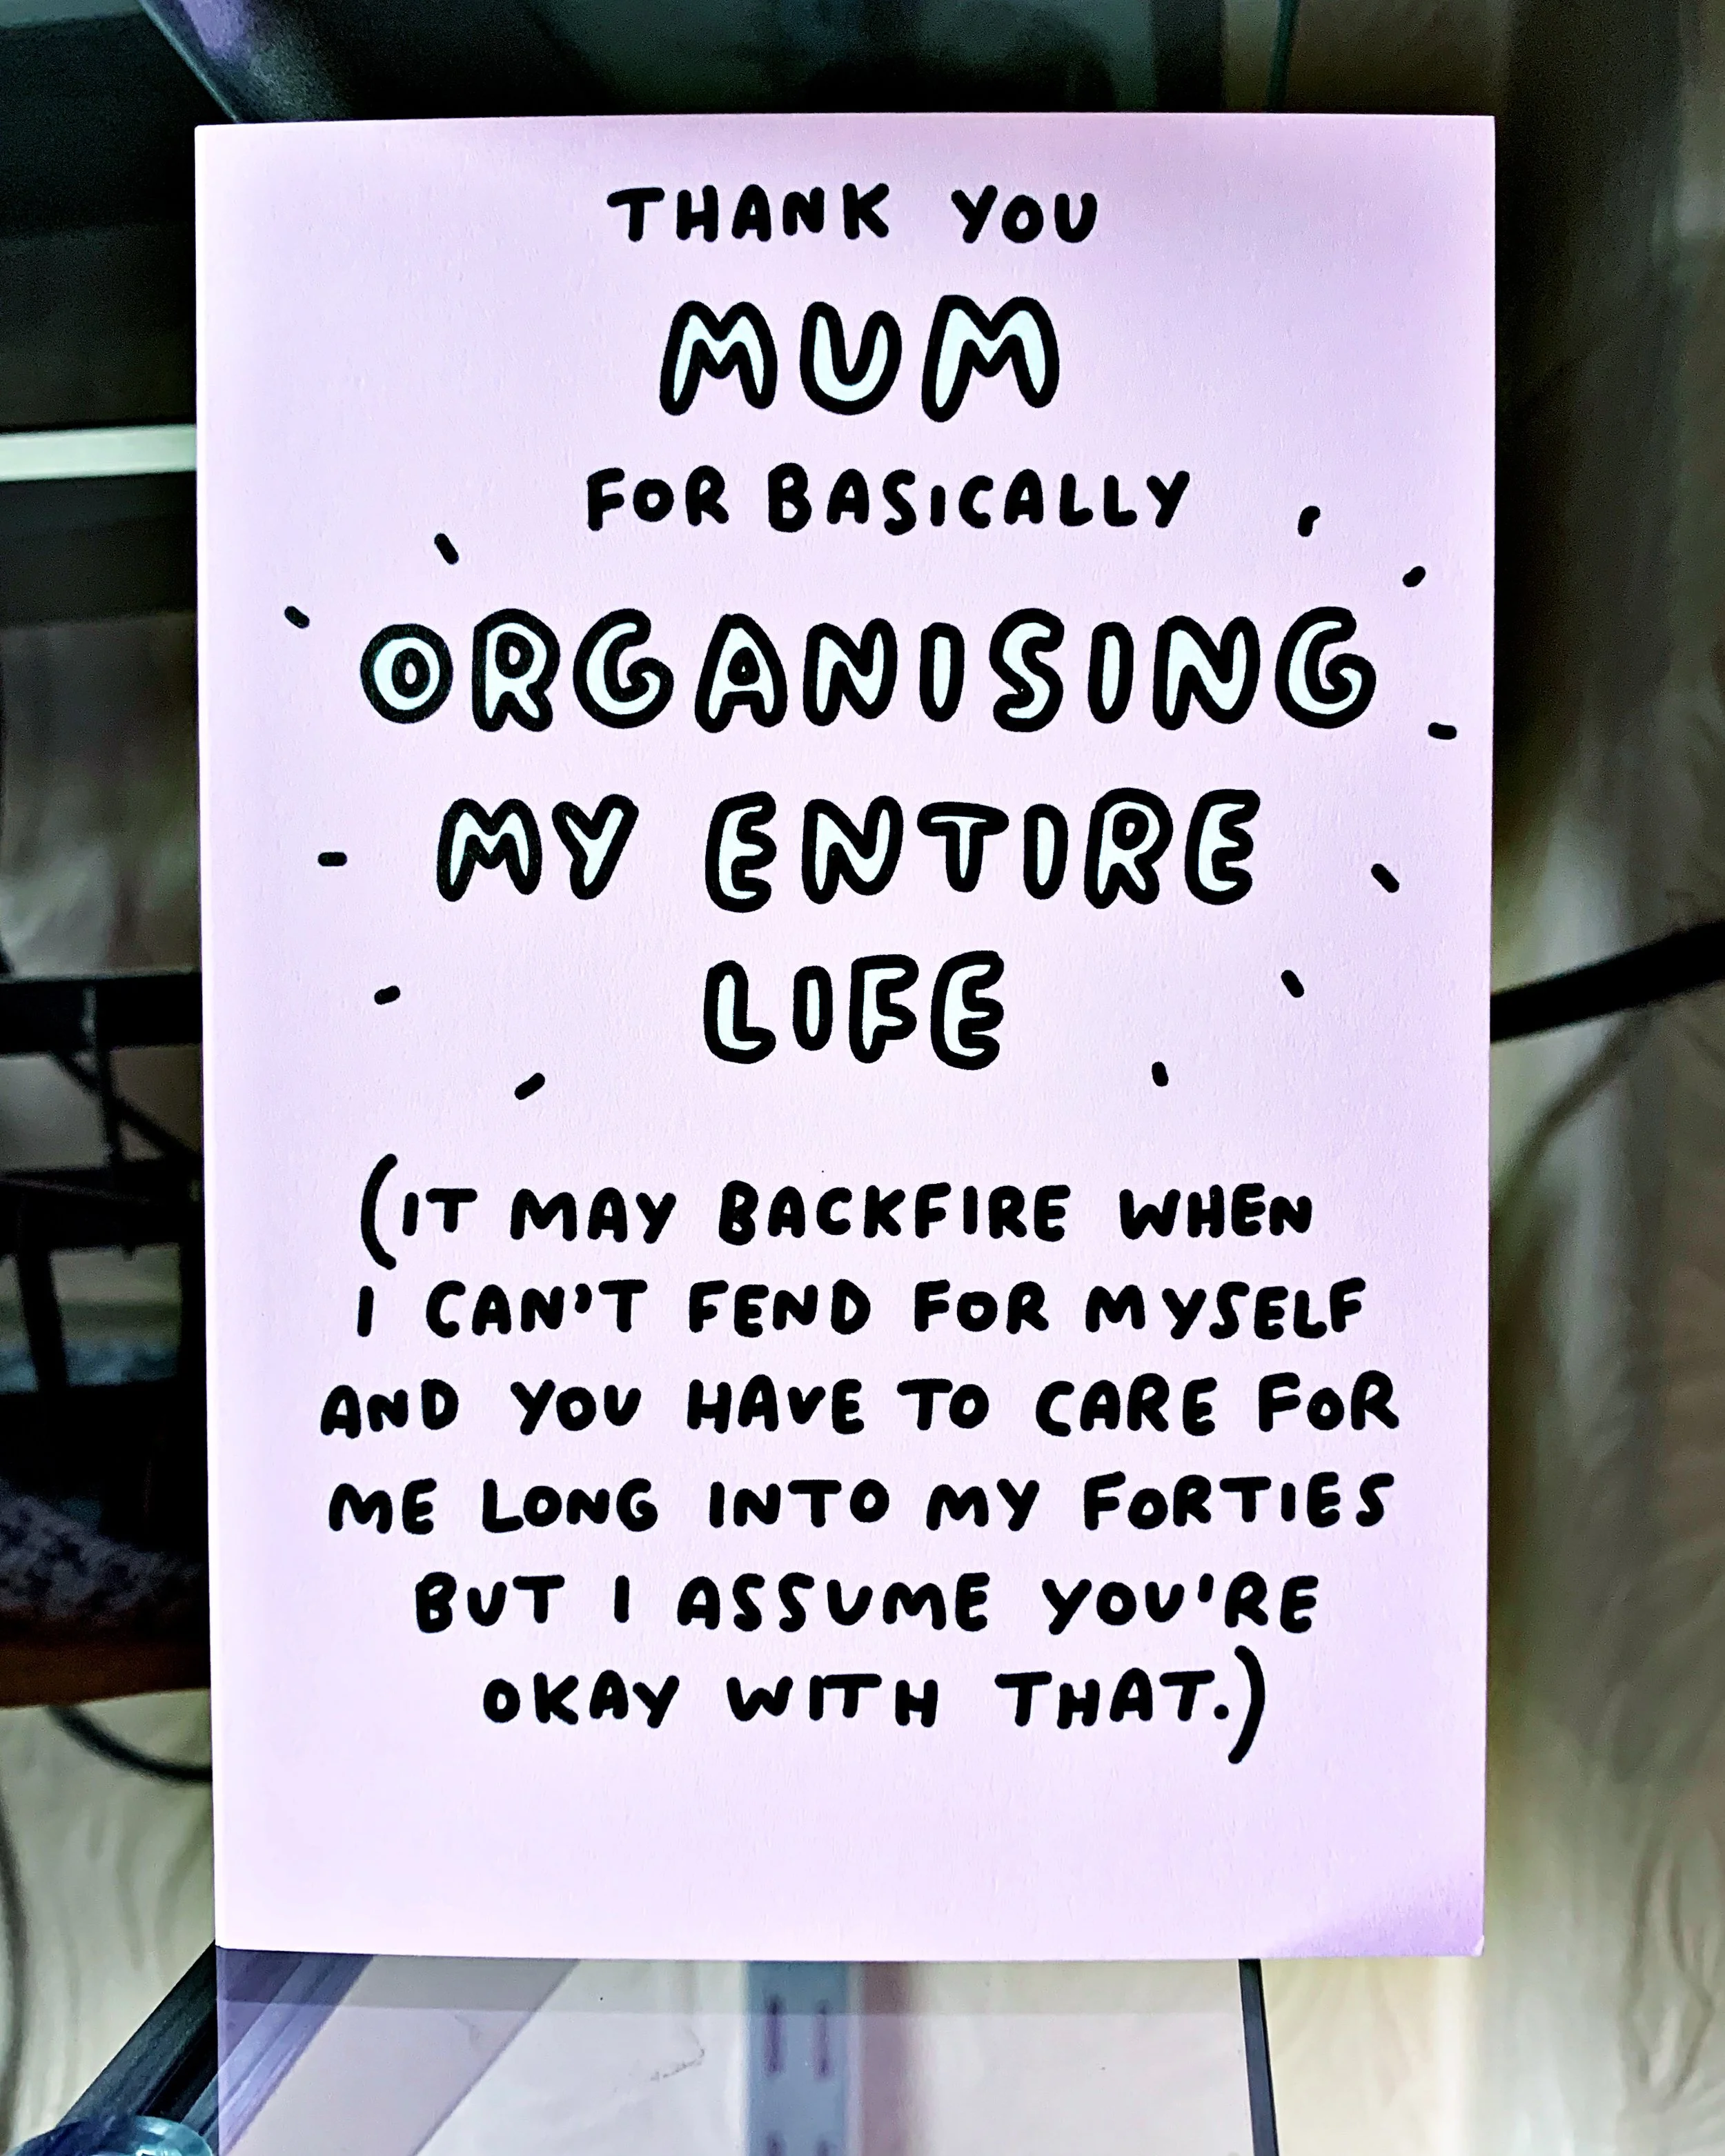 THANK YOU
MUM
FOR BASICALLY
ORGANISING
MY ENTIRE
LIFE
(IT MAY BACKFIRE WHEN
I CAN'T FEND FOR MYSELF
AND YOU HAVE TO CARE FOR
ME LONG INTO MY FORTIES
BUT I ASSUME YOU'RE
OKAY WITH THAT.)